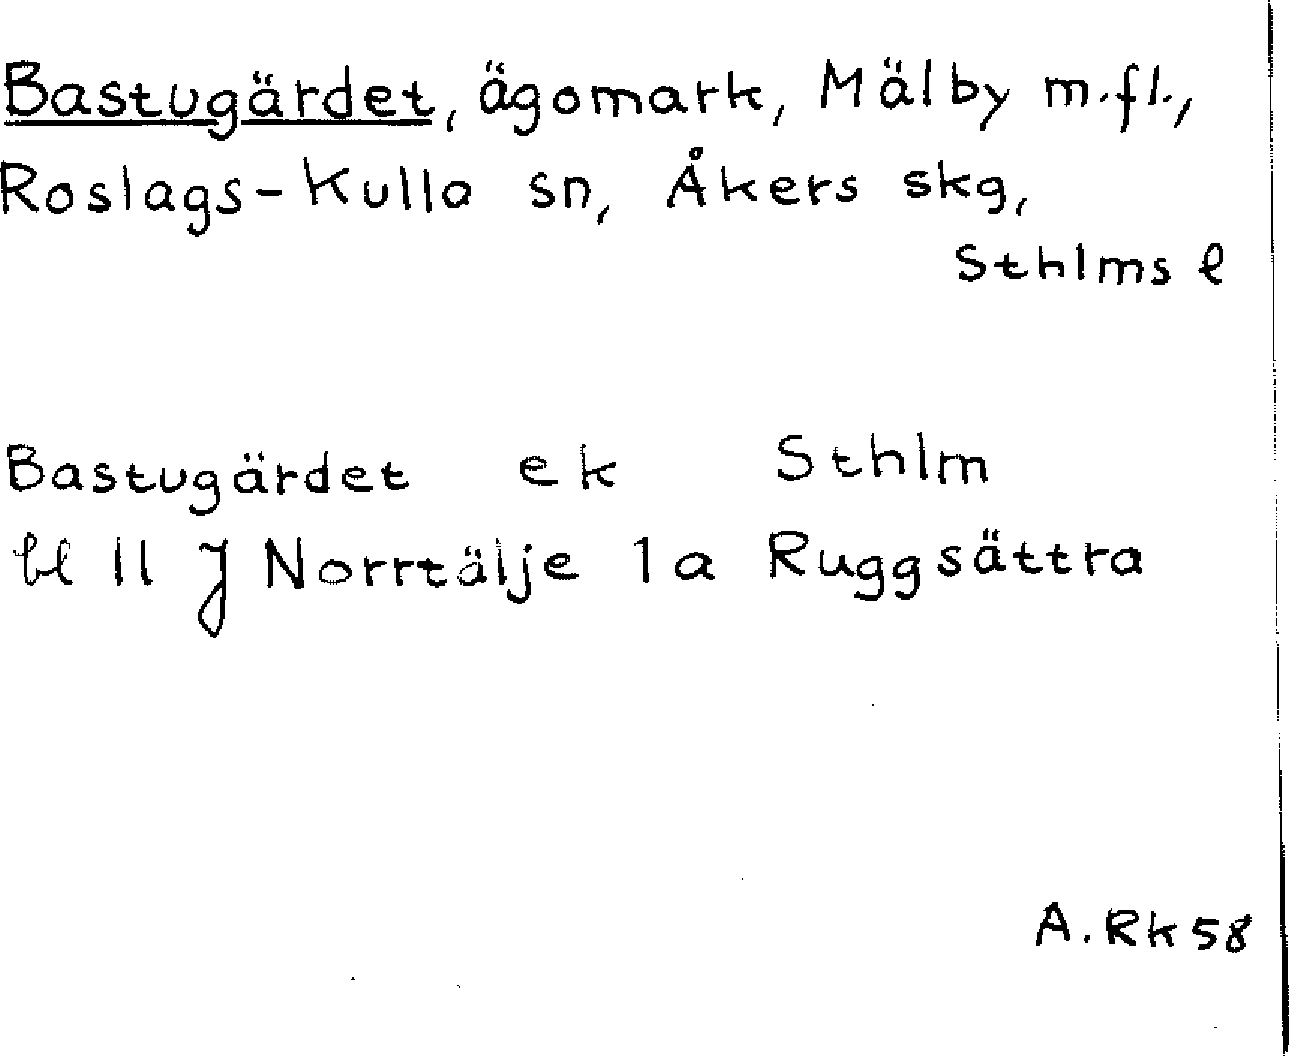 Bastugärdet, ägomark, Mälby m.fl.,
Roslags-Kulla sn, Åkers skg,
Sthlms l
Bastugärdet ek Sthlm
bl 11 J Norrtälje 1a Ruggsättra
A. Rk 58